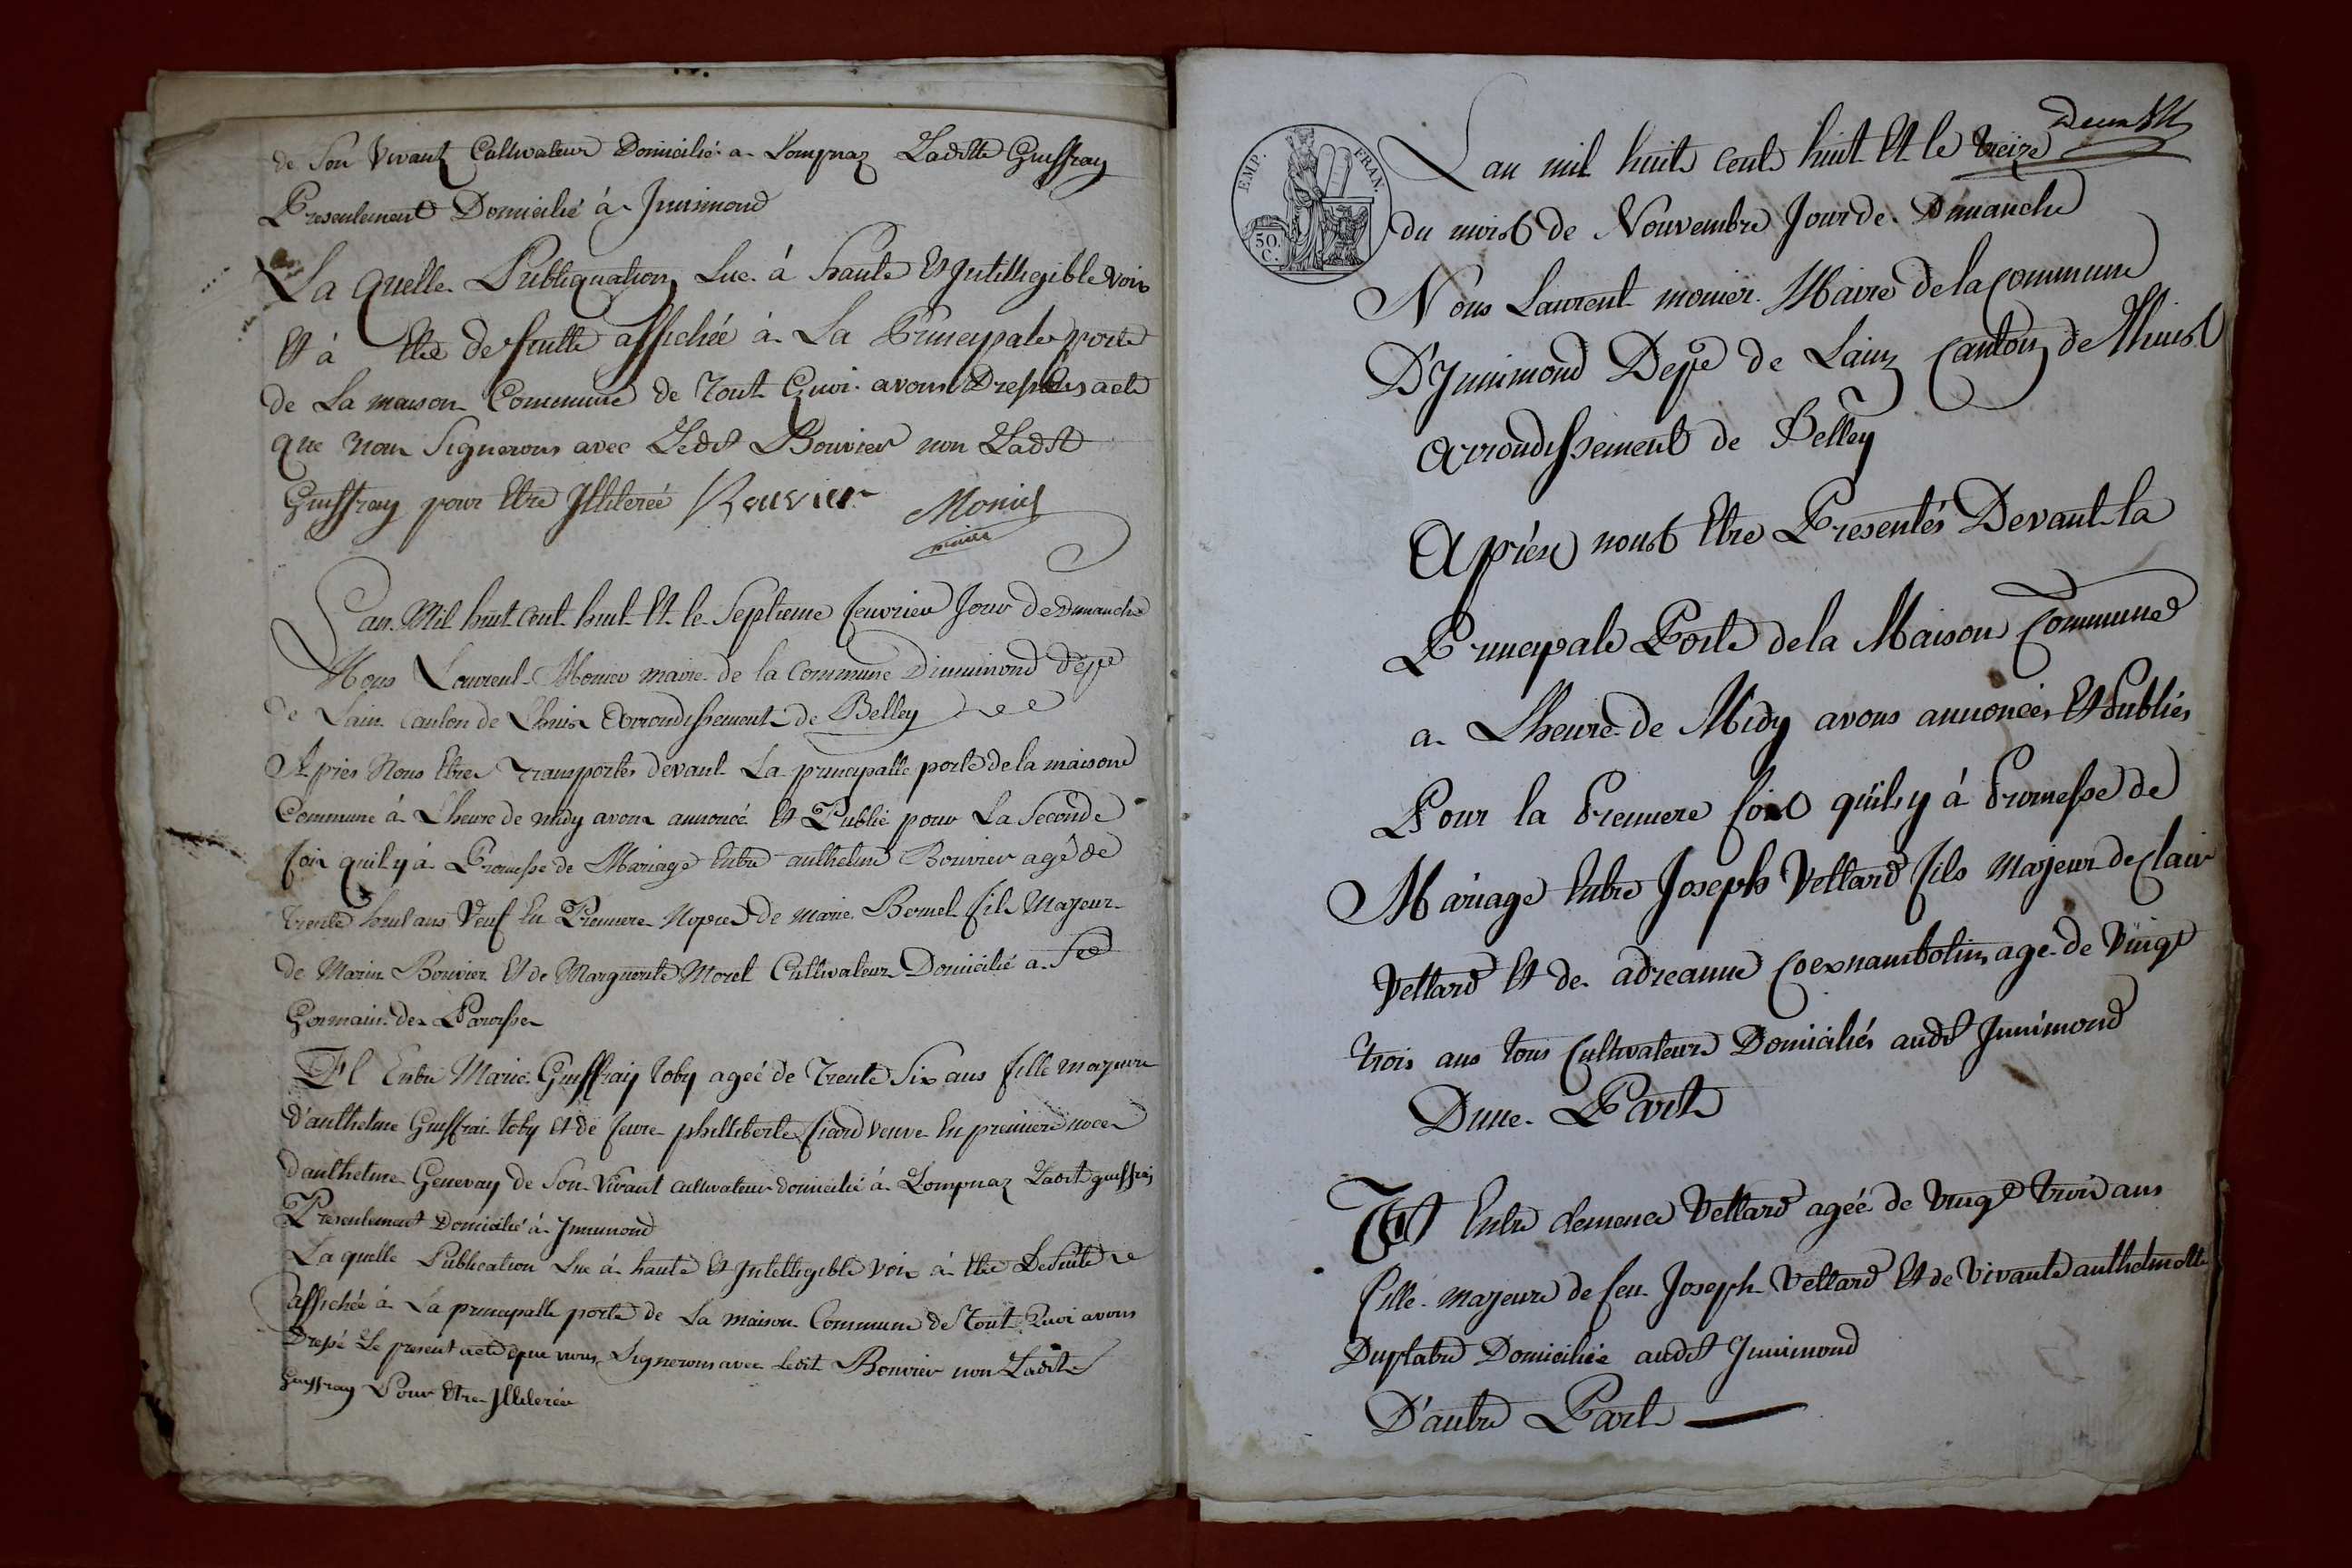 de Son Vivant Cultivateur Domicilié a Lompnaz Laditte Guiffray
Presentement Domicilié à Innimond
La quelle Publiquation Lue à haute Et Intelligible voix
Et à Etée de suitte affichée à La Principale porte
de La maison Commune de Tout Quoi avons Dressées acte
que nous Signerons avec Ledit Bouvier non Ladit
Guiffray pour Etre Illiterée Bouvier Monier
maire
L'an Mil huit cent huit Et le Septieme fevrier Jour de Dimanche
Nous Lourent Monier maire de la Commune D'innimond dept
de Lain Canton de Lhuis Arrondissement de Belley
Apries Nous Etres transportes devant La principalle porte de la maison
Commune à L'heure de midy avons annoncé Et Publié pour La Seconde
fois quil y à Promesse de Mariage Entre anthelme Bouvier agé de
trente huit ans Veuf En Premiere Nopces de marie Bornel fils Majeur
de Marin Bouvier Et de Marguerite Morel Cultivateur Domicilié a St
Germain des Paroisses
Et Entre Marie Guiffray toby ageé de Trente Six ans fille majeure
d'anthelme Guiffrai toby Et de feue philliberte ficard veuve En premiere noces
d'anthelme Genevay de Son Vivant cultivateur domicilié à Lompnaz Ladit guiffrai
Presentement Domicilié à Innimond
La quelle Publication Lue à haute Et Intelligible voix à Etée De Suite
affichée à La principalle porte de La maison Commune de Tout Quoi avons
Dressé Le present acte que nous Signerons avec ledit Bouvier non Ladite
Guiffray Pour Etre Illiterée
EMP. FRAN.
50.
C.
Lan mil huits cents huit Et le treize
du mois de Nouvembre Jour de Dimanche
Nous Laurent monier Maire de la Commune
D'Innimond Dept de Lain Canton de Lhuis
Arrondissement de Belley
Apries nous Etre Presentés Devant la
Principale Porte de la Maison Commune
a Lheure de Midy avons annoncées Et Publiés
Pour la Premiere fois quil y à Promesse de
Mariage Entre Joseph Vettard fils majeur de Clair
Vettard Et de adreanne agé de Vingt
trois ans tous Cultivateurs Domiciliés audit Innimond
Dune Part
Et Entre clemence Vettard agéé de vingt trois ans
fille majeure de feu Joseph Vettard Et de Vivante anthelmette
Duplatre Domiciliée audit Innimond
D'autre Part